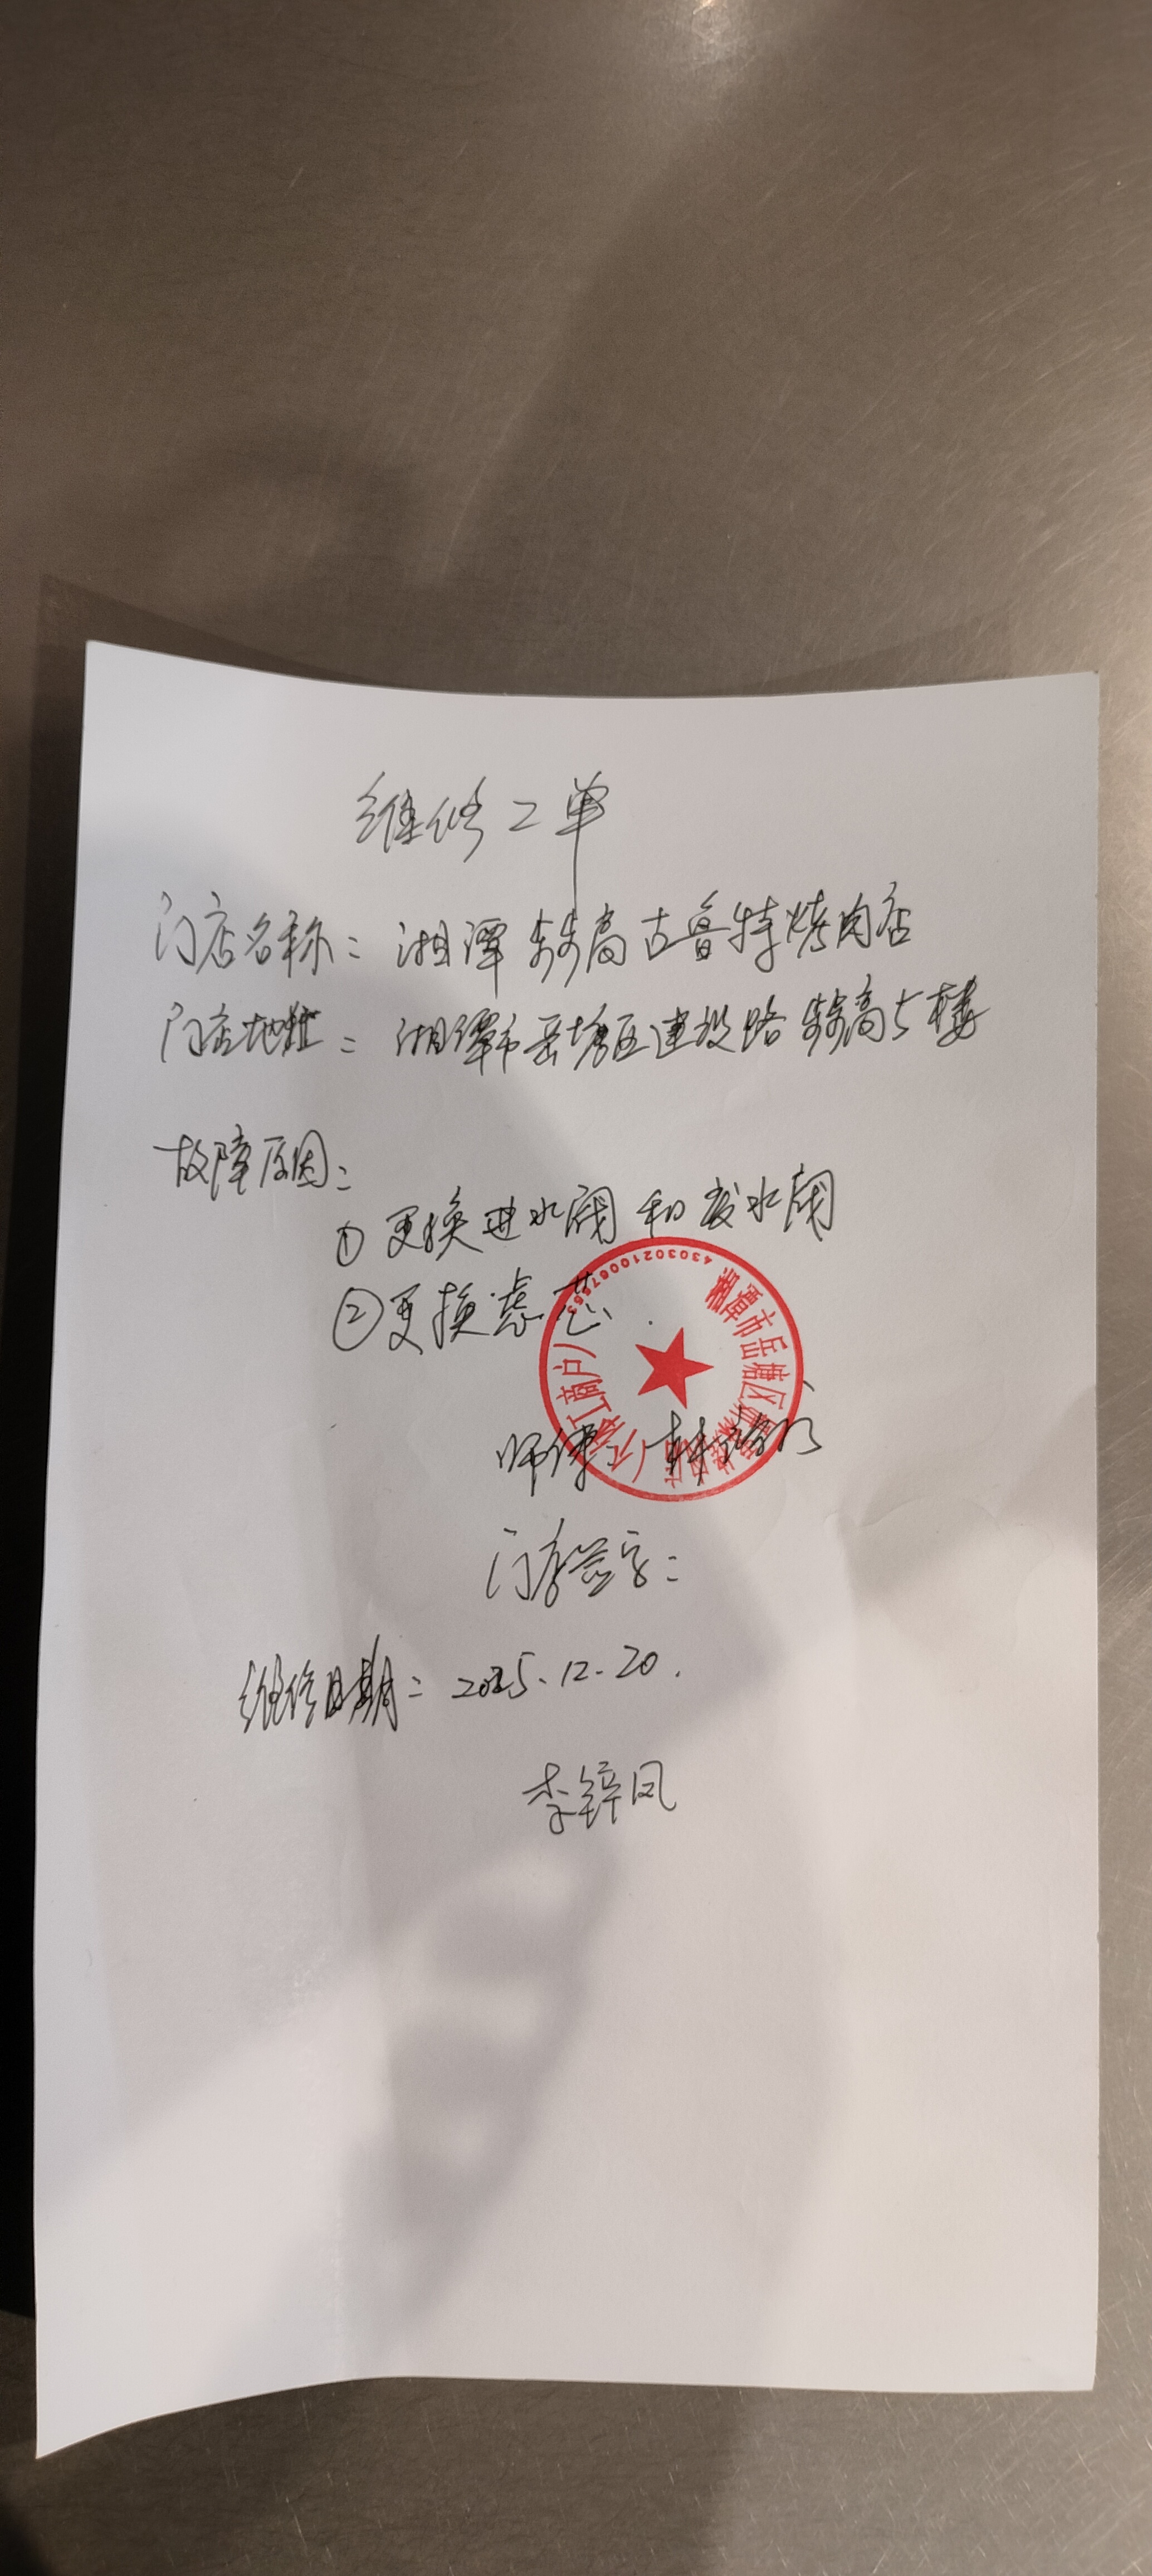 维修工单
门店名称：湘潭步步高古鲁特烤肉店
门店地址：湘潭市岳塘区建设路步步高5楼
故障原因：
① 更换进水阀和废水阀
② 更换滤芯.
师傅：韩
门店签字：
维修日期：2025.12.20.
李锌凤
湘潭市岳塘区
工商户）
43030210067553